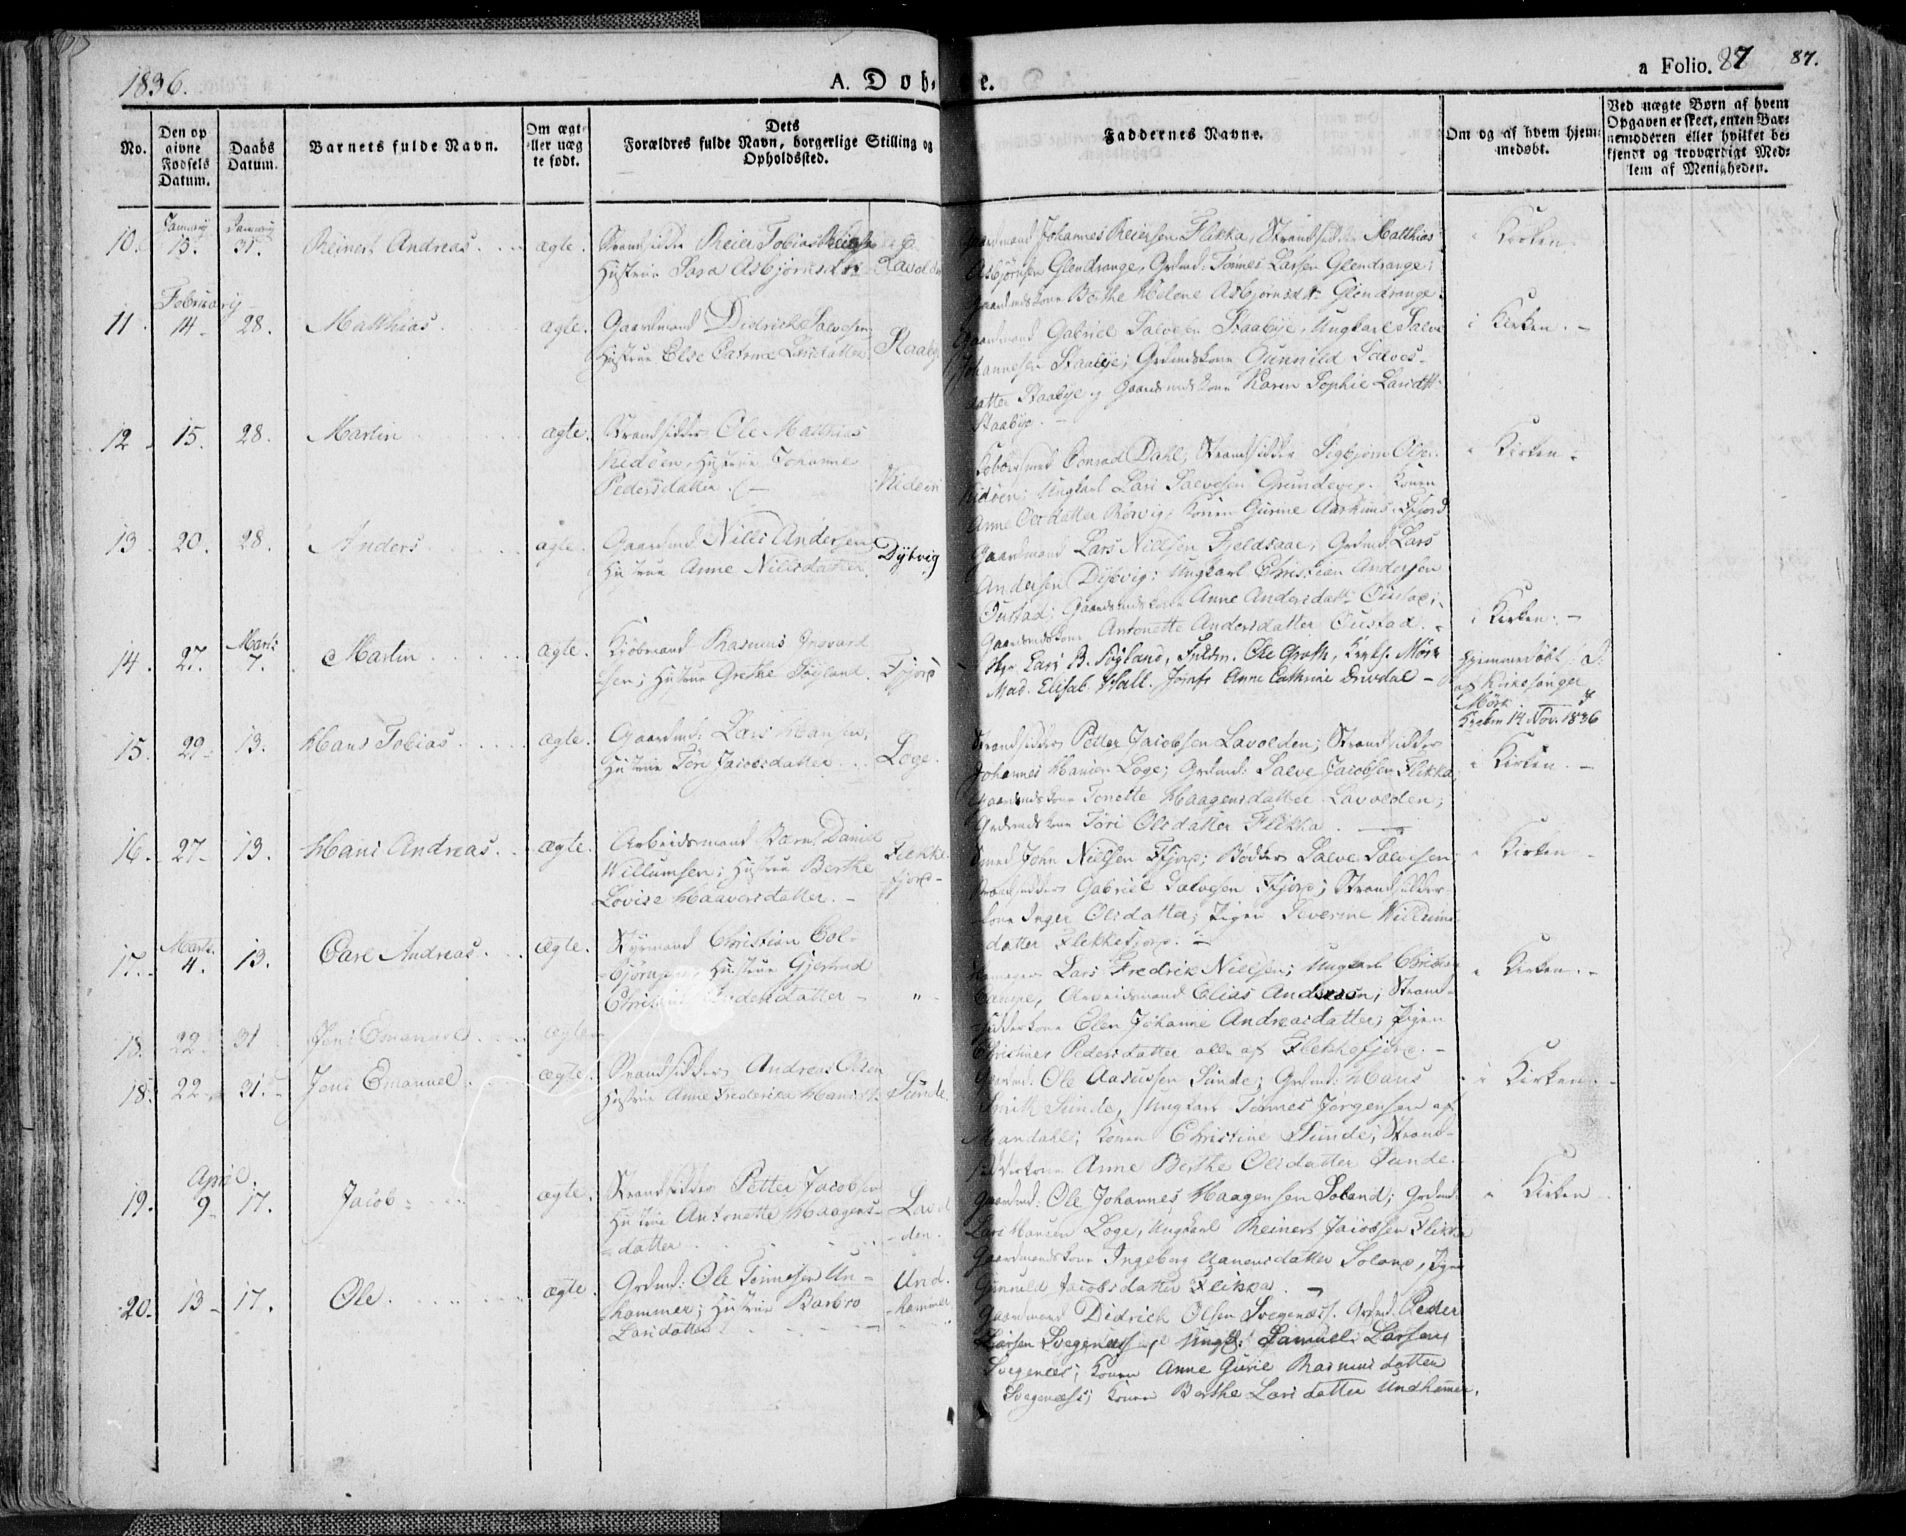 1836.
A. Døb- e.
a Folio. 87
87.
No.
Den op givne Fødsels Datum.
Daabs Datum.
Barnets fulde Navn.
Om ægte eller uæg te født.
Dets Forældres fulde Navn, borgerlige Stilling og Opholdssted.
Faddernes Navne.
Om og af hvem hjem- medøbt.
Ved uægte Børn af hvem Opgaven er skeet, enten Bar- nemoderen eller hvilket be- kjendt og troværdigt Med- lem af Menigheden.
10. January 15. January 31. Reinert Andreas. ægte.
Strandsidder Reier Tobias
Hustrue Sara Asbjørnsdtr Lavolden
Gaardmand Johannes Reiersen Flikka, Strandsidder Matthias
Asbjørnsen Glendrange, Grdmd: Tønnes Larsen Glendrange;
Gaardmdskone Berthe Helene Asbjørnsdtr Glendrange.
i Kirken.
11. February 14. 28. Matthias. ægte.
Gaardmand Didrich Salvesen
Hustrue Else Catrine Larsdatter Staabye
Gaardmand Gabriel Salvesen Staabye, Ungkarl Salve
Johannesen Staabye; Grdmdskone Gunnild Salves-
datter Staabye og Gaardmdskone Karen Sophie Larsdtr
Staabye. -
i Kirken. -
12. 15. 28. Martin ægte.
Strandsidder Ole Mathias
Hidøen, Hustrue Johanne
Pedersdatter. Hidøen
Conrad Dahl; Strandsidder Sigbjørn Olsen
Hidøen; Ungkarl Lars Salvesen Grundevig. Konen
Anne Olsdatter Rørvig; Konen Gurine Fjord.
i Kirken.
13. 20. 28. Anders ægte.
Gaardmd Niels Andersen
Hustrue Anne Nielsdatter. Dybvig
Gaardmand Lars Nielsen Fjeldsaae; Grdmd: Lars
Andersen Dybvig; Ungkarl Christian Andersen
Øustad; Gaardmdskone Anne Andersdatr Øustad;
Gaardmdskone Antonette Andersdatter Øustad. -
i Kirken. -
14. 27. Marts 7. Martin. ægte.
Kjøbmand Rasmus Ingvard
sen; Hustrue Grethe Føyland. Ffjord
Hr Lars B. Føyland, Ole Groth, Mørk
Mad. Elisab. Hall. Jomfr Anne Cathrine Drivdal -
Hjemmedøbt
af Kirkesanger
Mørk
Kirken 14 Nov. 1836
15. 29. 13. Hans Tobias. ægte.
Gaardmd: Lars Hansen,
Hustrue Tøri Jacobsdatter. Loge.
Strandsidder Petter Jacobsen Lavolden; Strandsidder
Johannes Hansen Loge; Grdmd: Salve Jacobsen Flikka
Gaardmdskone Tonette Haagensdatter Lavolden;
Grdmdskone Tøri Olsdatter Flikka. -
i Kirken. -
16. 27. 13. Hans Andreas. ægte.
Arbeidsmand Daniel
Willumsen; Hustrue Berthe
Lovise Haaversdatter. - Flekke-
fjord -
Smed John Nielsen Ffjord; Bødker Salve Salvesen
Strandsidder Gabriel Salvesen Ffjord; Strandsidder
kone Inger Olsdatter; Pigen Severine Willums
datter Flekkefjord. -
i Kirken -
17. Marts 4. 13. Carl Andreas. ægte.
Styrmand Christian Col-
bjørnsen, Hustrue Gjertrud
Christine datter - "
Lars Fredrik Nielsen; Ungkarl Christian
Campe, Arbeidsmand Elias Andersen; Strand-
sidderkone Elen Johanne Andreasdatter; Pigen
Christine Pedersdatter alle af Flekkefjord. -
i Kirken. -
18. 22. 31. Jens Emanuel. ægte
18. 22. 31. Jens Emanuel. ægte.
Strandsidder Andreas Olsen
Hustrue Anne Frederika Hansdtr Sunde.
Gaardmd: Ole Aasuosen Sunde; Grdmd: Hans
Smith Sunde, Ungkarl Tønnes Jørgensen af
Mandahl; Konen Christine Sunde; Strand-
sidderkone Anne Berthe Olsdatter Sunde.
i Kirken. -
19. April. 9. 17. Jacob. ægte.
Strandsidder Petter Jacobsen
Hustrue Antonette Haagens-
datter. Lavol-
den.
Gaardmd: Ole Johannes Haagensen Soland; Grdmd:
Lars Hansen Loge, Ungkarl Reinert Jacobsen Flikka
Gaardmandskone Ingeborg Aanensdatter Soland, Pigen
Gunnild Jacobsdatter Flikka. -
i Kirken
20. 13 - 17. Ole. ægte.
Grdmd: Ole Tønnesen Un-
hammer; Hustrue Barbro
Larsdatter. Und-
hammer
Gaardmand Didrick Olsen Svegenæs. Grdmd. Peder
Larsen Svegenæs, Ungk. Samuel Larsen
Svegenæs; Konen Anne Gurie Rasmusdatter
Svegenæs; Konen Berthe Larsdatter Undhamer.